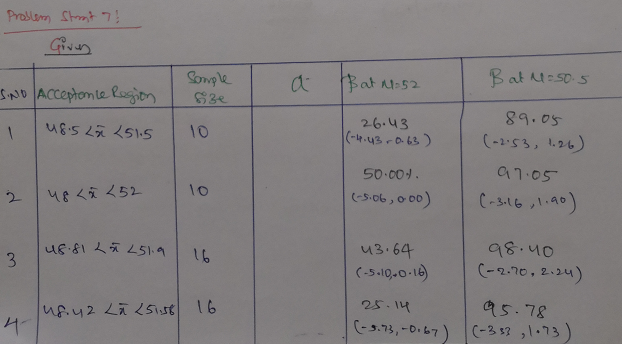 Problem Stmt 7!
Given
S.NO Acceptance Region Sample Size α β at M=52 β at M=50.5
1 48.5 < x̄ < 51.5 10 26.43 (-4.43 -0.63) 89.05 (-2.53, 1.26)
2 48 < x̄ < 52 10 50.00%. (-5.06, 0.00) 97.05 (-3.16, 1.90)
3 48.81 < x̄ < 51.9 16 43.64 (-5.10,-0.16) 98.40 (-2.70, 2.24)
4 48.42 < x̄ < 51.58 16 25.14 (-5.73, -0.67) 95.78 (-3.33, 1.73)